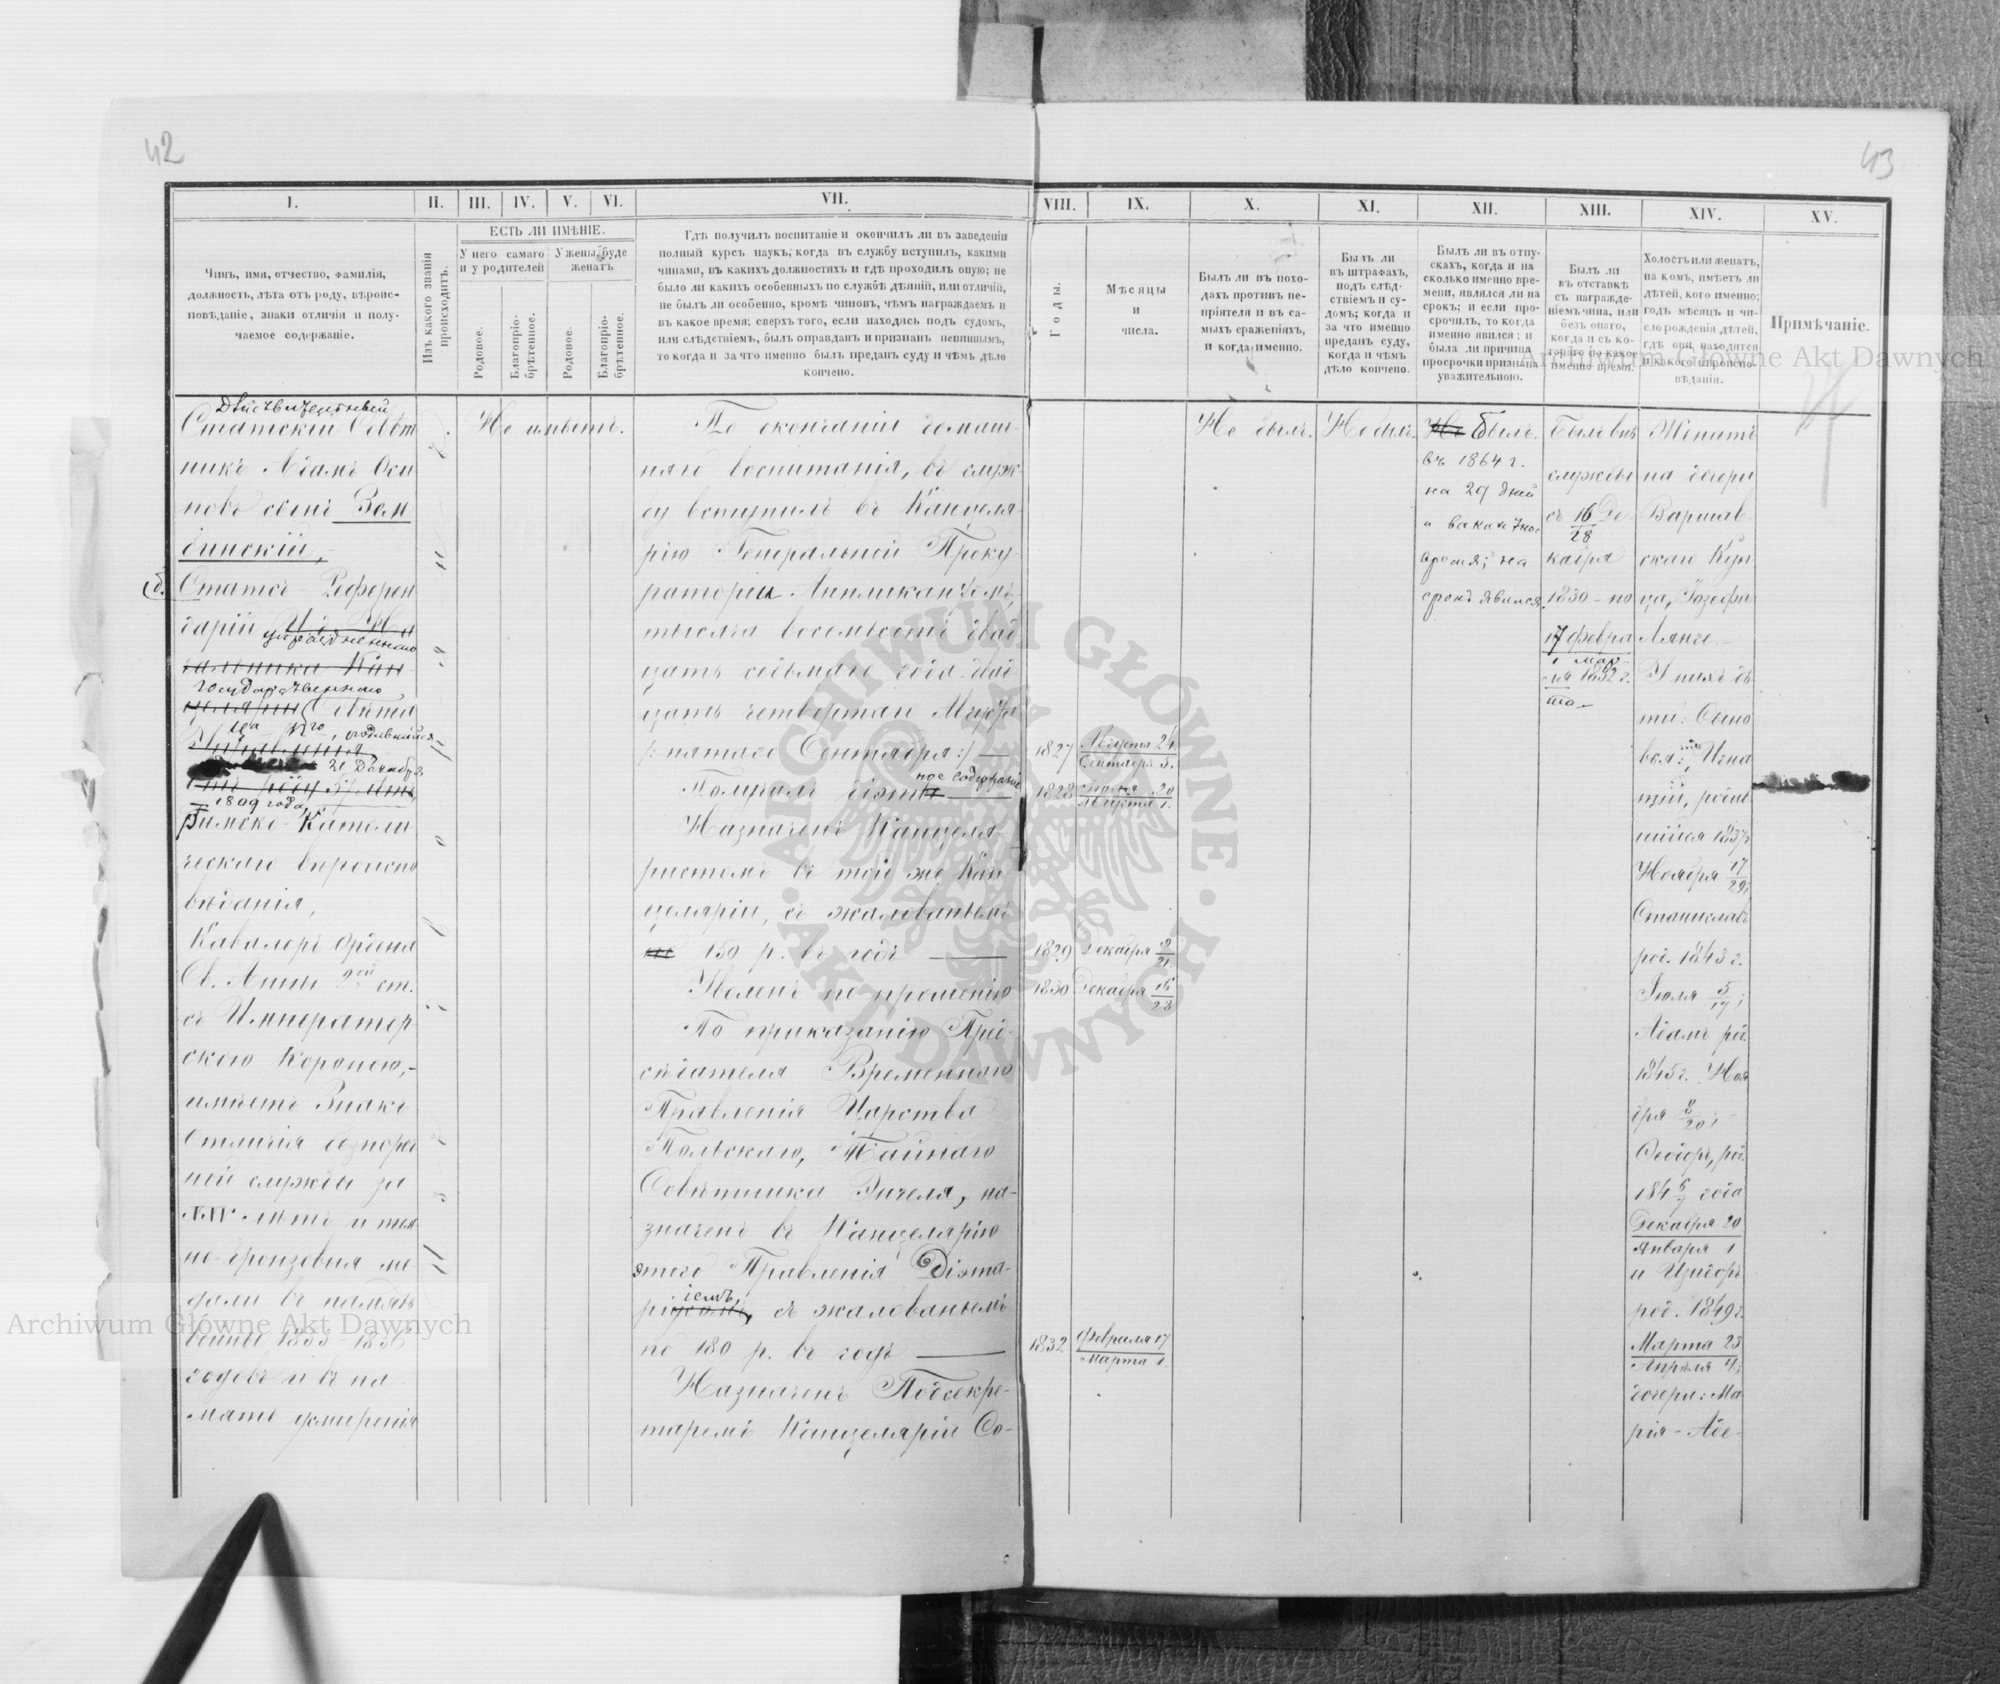 42
43
I.
II.
III.
IV.
V.
VI.
VII.
VIII.
IX.
X.
XI.
XII.
XIII.
XIV.
XV.
Чинъ, имя, отчество, фамилія,
должность, лѣта отъ роду, вѣроис-
повѣданіе, знаки отличія и полу-
чаемое содержаніе.
Изъ какого званія
происходитъ.
ЕСТЬ ЛИ ИМѢНІЕ.
У него самаго
и у родителей
У жены, буде
женатъ
Родовое.
Благопріо-
брѣтенное.
Родовое.
Благопріо-
брѣтенное.
Гдѣ получилъ воспитаніе и окончилъ ли въ заведеніи
полный курсъ наукъ; когда въ службу вступилъ, какими
чинами, въ какихъ должностяхъ и гдѣ проходилъ оную; не
было ли какихъ особенныхъ по службѣ дѣяній, или отличій,
не былъ ли особенно, кромѣ чиновъ, чѣмъ награждаемъ и
въ какое время; сверхъ того, если находясь подъ судомъ,
или слѣдствіемъ, былъ оправданъ и признанъ невиннымъ,
то когда и за что именно былъ преданъ суду и чѣмъ дѣло
кончено.
Годы.
Мѣсяцы
и
числа.
Былъ ли въ похо-
дахъ противъ не-
пріятеля и въ са-
мыхъ сраженіяхъ,
и когда именно.
Былъ ли
въ штрафахъ,
подъ слѣд-
ствіемъ и су-
домъ; когда и
за что именно
преданъ суду,
когда и чѣмъ
дѣло кончено.
Былъ ли въ отпу-
скахъ, когда и на
сколько именно вре-
мени, являлся ли на
срокъ; и если про-
срочилъ, то когда
именно явился; и
была ли причина
просрочки признана
уважительною.
Былъ ли
въ отставкѣ
съ награжде-
ніемъ чина, или
безъ онаго,
когда и съ ко-
тораго по какое
именно время.
Холостъ или женатъ,
на комъ, имѣетъ ли
дѣтей, кого именно;
годъ мѣсяцъ и чи-
сло рожденія дѣтей,
гдѣ они находятся
и какого вѣроиспо-
вѣданія.
Примѣчаніе.
Дѣйствительный
Статскій Совѣт
никъ Адамъ Оси
повъ сынъ Зем
бинскій,
Статсъ-Референ
дарій
упраздненнаго
Государственнаго
Совѣта
родившійся
21 Декабря
1809 года,
Римско-Католи
ческаго вѣроиспо
вѣданія,
Кавалеръ Ордена
Св. Анны 2ой ст.
съ Император-
скою Короною,-
имѣетъ Знакъ
Отличія безпороч
ной службы за
XXV лѣтъ и тем
но-бронзовыя ме
дали въ память
войны 1853-1856
годовъ и въ па-
мять усмиренія
Не имѣетъ.
По окончаніи домаш-
няго воспитанія, въ служ-
бу вступилъ въ Канцеля-
рію Генеральной Проку
раторіи Аппликантомъ,
тысяча восемьсотъ двад
цать седьмаго года двад
цать четвертаго Августа
/:пятаго Сентября:/
1827 Августа 24
Сентября 5.
Получалъ діэт ное содержаніе
1828 Іюля 20
Августа 1.
Назначенъ Канцеля
ристомъ въ той же Кан
целяріи, съ жалованьемъ
по 150 р. въ годъ
1829 Декабря 9
21.
Уволенъ по прошенію
1830 Декабря 16
28
По приказанію Пред-
сѣдателя Временнаго
Правленія Царства
Польскаго, Тайнаго
Совѣтника Энгеля, на-
значенъ въ Канцелярію
этого Правленія Діэта-
ріемъ, съ жалованьемъ
по 180 р. въ годъ
1832 Февраля 17
Марта 1.
Назначенъ Подсекре-
таремъ Канцеляріи Со-
Не былъ.
Не былъ.
Не Былъ.
въ 1864 г.
на 29 дней
и вакатное
время; на
срокъ явился.
Былъ внѣ
службы
съ 16/28 Де-
кабря
1830 - по
17 Февра
1 Мар-
ля 1832 г.
та
Женатъ
на дочери
Варшав-
скаго Куп
ца, Іозефи
Лянге.
У нихъ дѣ
ти: Сыно
вья: Игна
тій, родив
шійся 1837г.
Ноября 17/29;
Станиславъ
род. 1843 г.
Іюля 5/17;
Адамъ род.
1845 г. Ноя
бря 8/20;
Ѳедоръ, род.
184 6/7 года
Декабря 20
Января 1
и Изидоръ
род. 1849 г.
Марта 23
Апрѣля 4;
дочери: Ма
рія-Аде-
Archiwum Główne Akt Dawnych
Archiwum Główne Akt Dawnych
ARCHIWUM GŁÓWNE AKT DAWNYCH